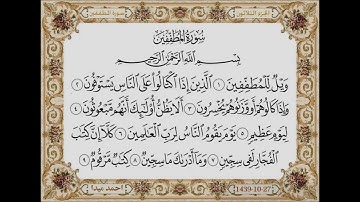 الجزء الثلاثون
سورة المطففين
سُورَةُ المُطَفِّفِينَ
بِسْمِ اللَّهِ الرَّحْمَٰنِ الرَّحِيمِ
وَيْلٌ لِّلْمُطَفِّفِينَ ١ الَّذِينَ إِذَا اكْتَالُوا عَلَى النَّاسِ يَسْتَوْفُونَ ٢
وَإِذَا كَالُوهُمْ أَو وَّزَنُوهُمْ يُخْسِرُونَ ٣ أَلَا يَظُنُّ أُولَٰئِكَ أَنَّهُم مَّبْعُوثُونَ ٤
لِيَوْمٍ عَظِيمٍ ٥ يَوْمَ يَقُومُ النَّاسُ لِرَبِّ الْعَالَمِينَ ٦ كَلَّا إِنَّ كِتَابَ
الْفُجَّارِ لَفِي سِجِّينٍ ٧ وَمَا أَدْرَاكَ مَا سِجِّينٌ ٨ كِتَابٌ مَّرْقُومٌ ٩
احمد عبدا
1439-10-27